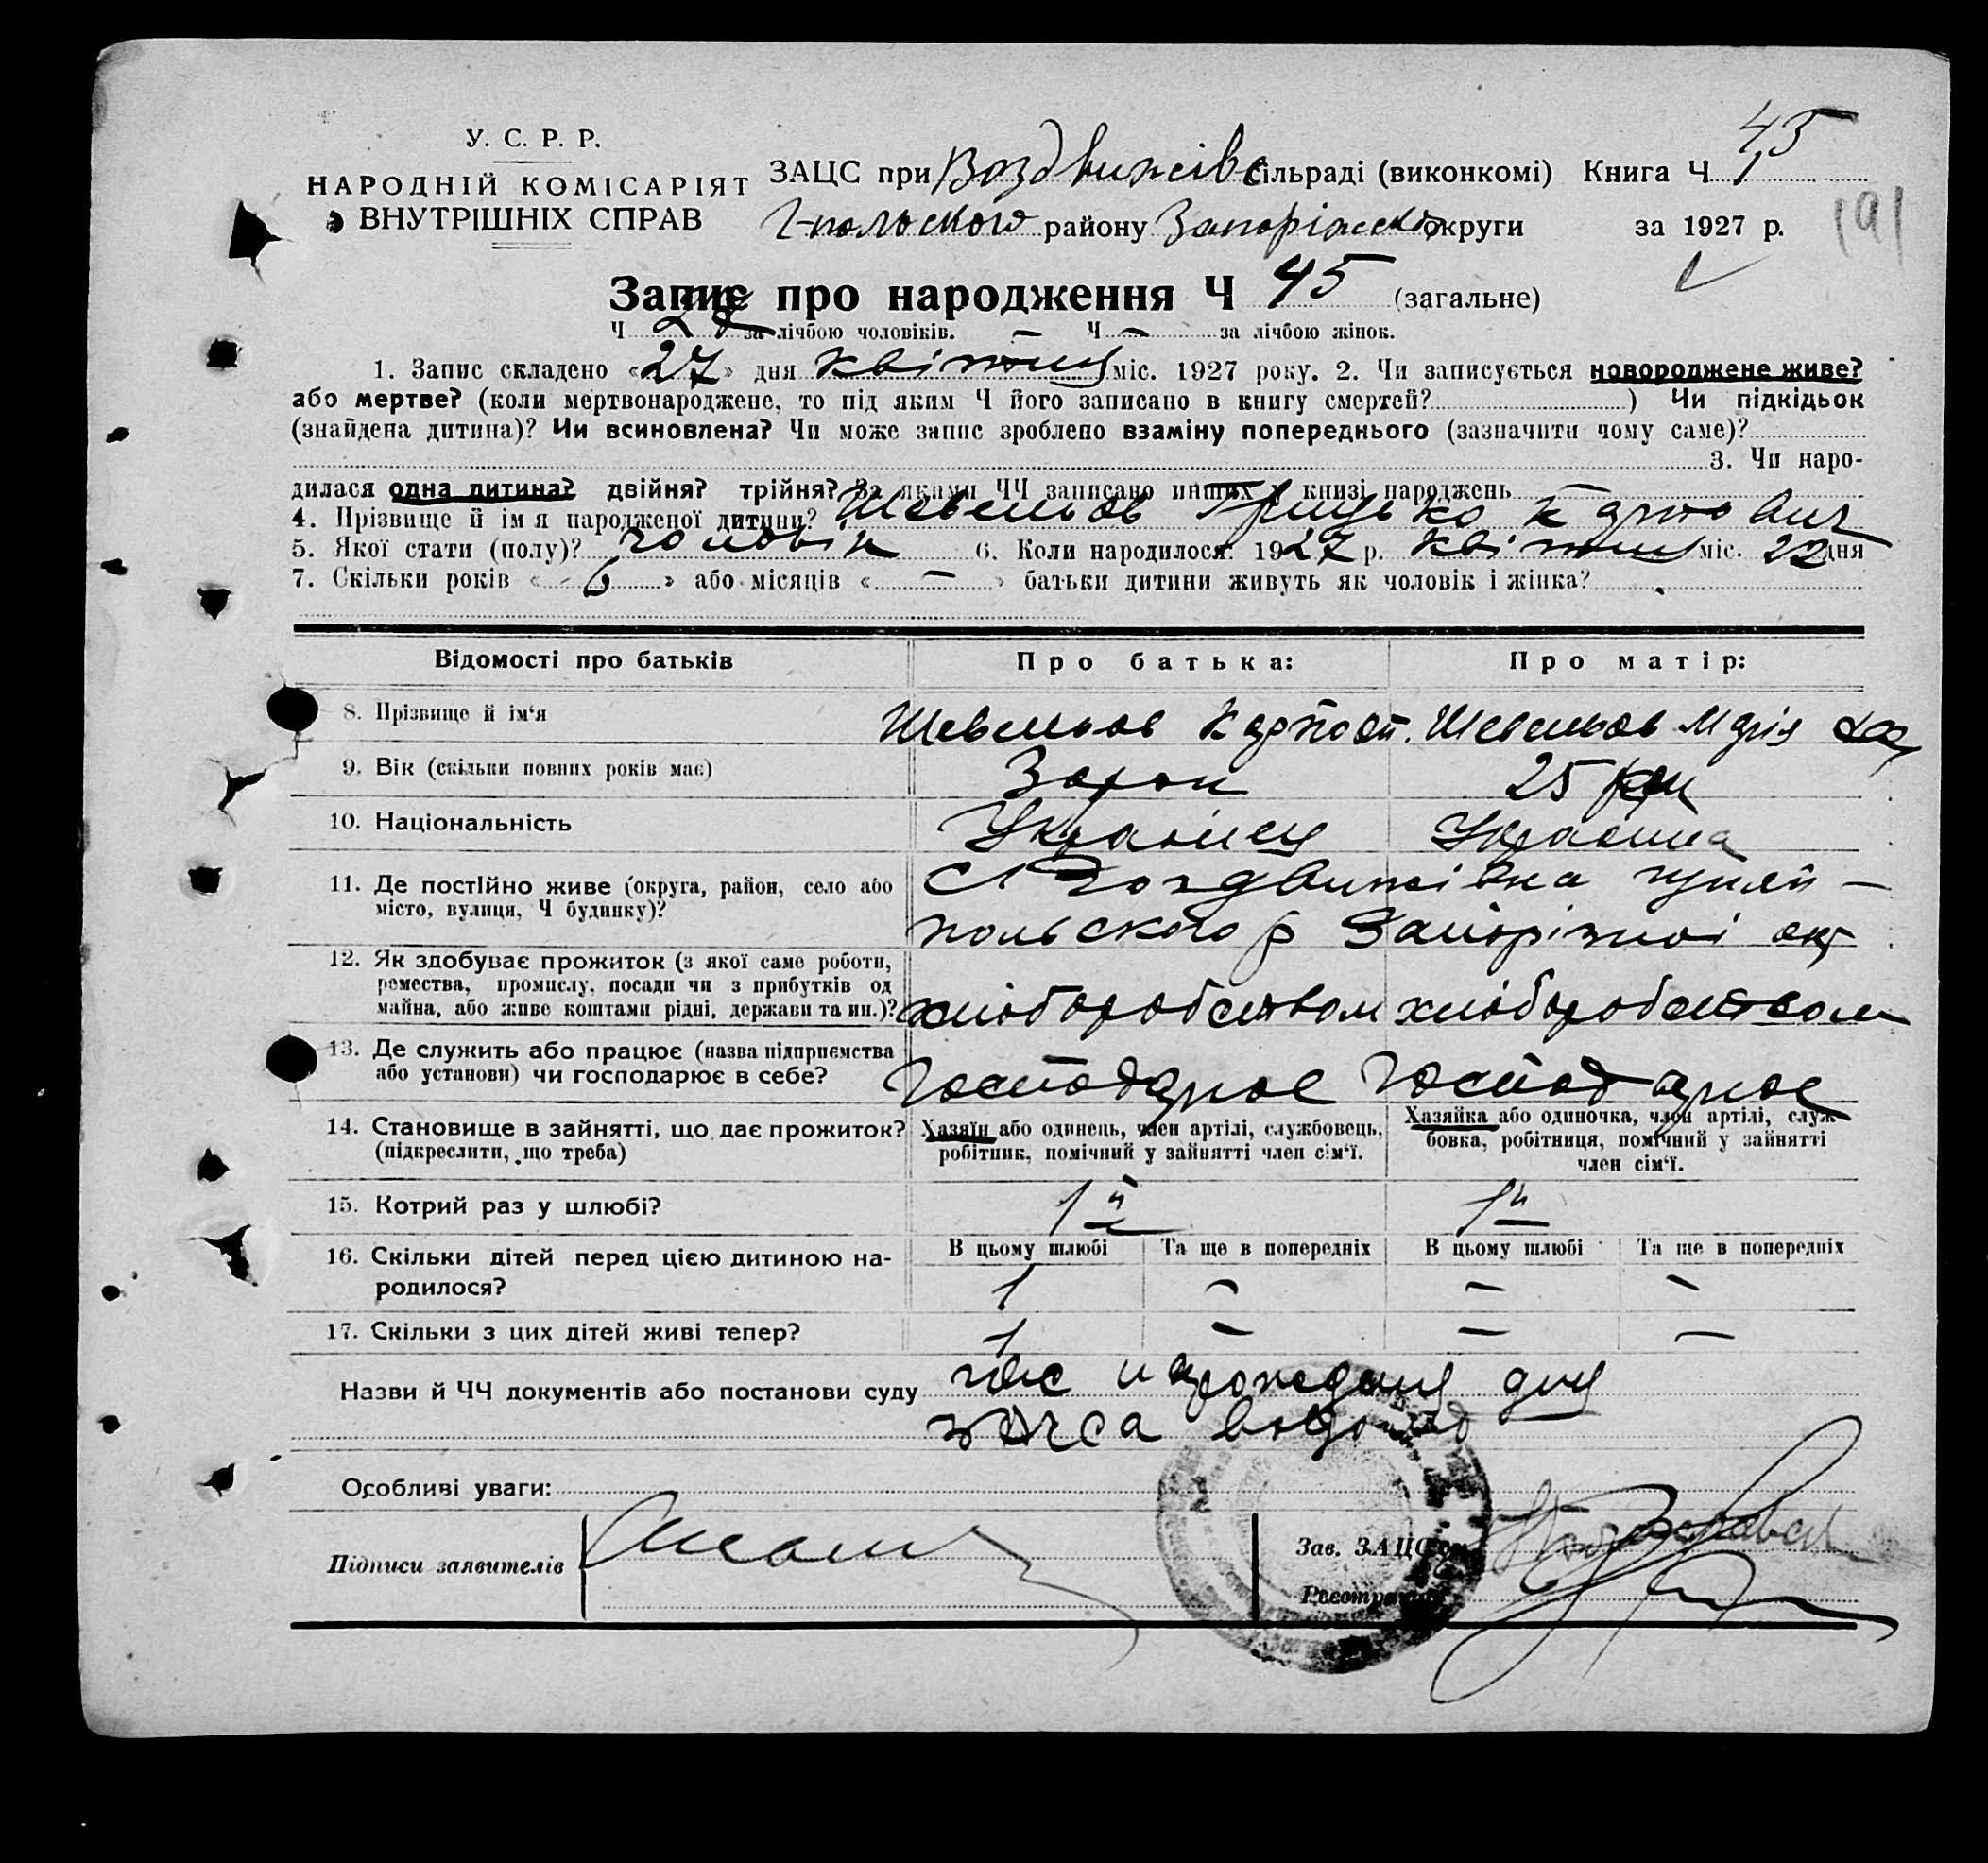 45
У. С. Р. Р.
НАРОДНІЙ КОМІСАРІЯТ
ВНУТРІШНІХ СПРАВ
ЗАЦС при Воздвижівс сільраді (виконкомі) Книга Ч 1
Г-польского району Запоріжської округи за 1927 р.
191
Запис про народження Ч 45 (загальне)
Ч за лічбою чоловіків. — Ч — за лічбою жінок.
1. Запис складено «27» дня квітня міс. 1927 року. 2. Чи записується новороджене живе?
або мертве? (коли мертвонароджене, то під яким Ч його записано в книгу смертей? ) Чи підкідьок
(знайдена дитина)? Чи всиновлена? Чи може запис зроблено взаміну попереднього (зазначити чому саме)?
3. Чи наро-
дилася одна дитина? двійня? трійня? За якими ЧЧ записано инших у книзі народжень
4. Прізвище й ім'я народженої дитини? Шевельов Грицько Карпович
5. Якої стати (полу)? чоловік 6. Коли народилося: 1927 р. квітня міс. 22 дня
7. Скільки років « 6 » або місяців « — » батьки дитини живуть як чоловік і жінка?
Відомості про батьків
Про батька:
Про матір:
8. Прізвище й ім'я
Шевельов Карпо
Шевельов Марія
9. Вік (скільки повних років має)
25 рок
10. Національність
Українец
Українка
11. Де постійно живе (округа, район, село або
місто, вулиця, Ч будинку)?
С Воздвижівка гуляй-
польского р Запоріжної окр
12. Як здобуває прожиток (з якої саме роботи,
ремества, промислу, посади чи з прибутків од
майна, або живе коштами рідні, держави та ин.)?
хліборобством
хліборобством
13. Де служить або працює (назва підприємства
або установи) чи господарює в себе?
Господарює
Господарює
14. Становище в зайнятті, що дає прожиток?
(підкреслити, що треба)
Хазяїн або одинець, член артілі, службовець,
робітник, помічний у зайнятті член сім'ї.
Хазяйка або одиночка, член артілі, служ-
бовка, робітниця, помічний у зайнятті
член сім'ї.
15. Котрий раз у шлюбі?
1й
1й
16. Скільки дітей перед цією дитиною на-
родилося?
В цьому шлюбі
Та ще в попередніх
В цьому шлюбі
Та ще в попередніх
1 — — —
17. Скільки з цих дітей живі тепер?
1 — — —
Назви й ЧЧ документів або постанови суду
Особливі уваги:
Підписи заявителів
Зав. ЗАЦСу
Реєстратор